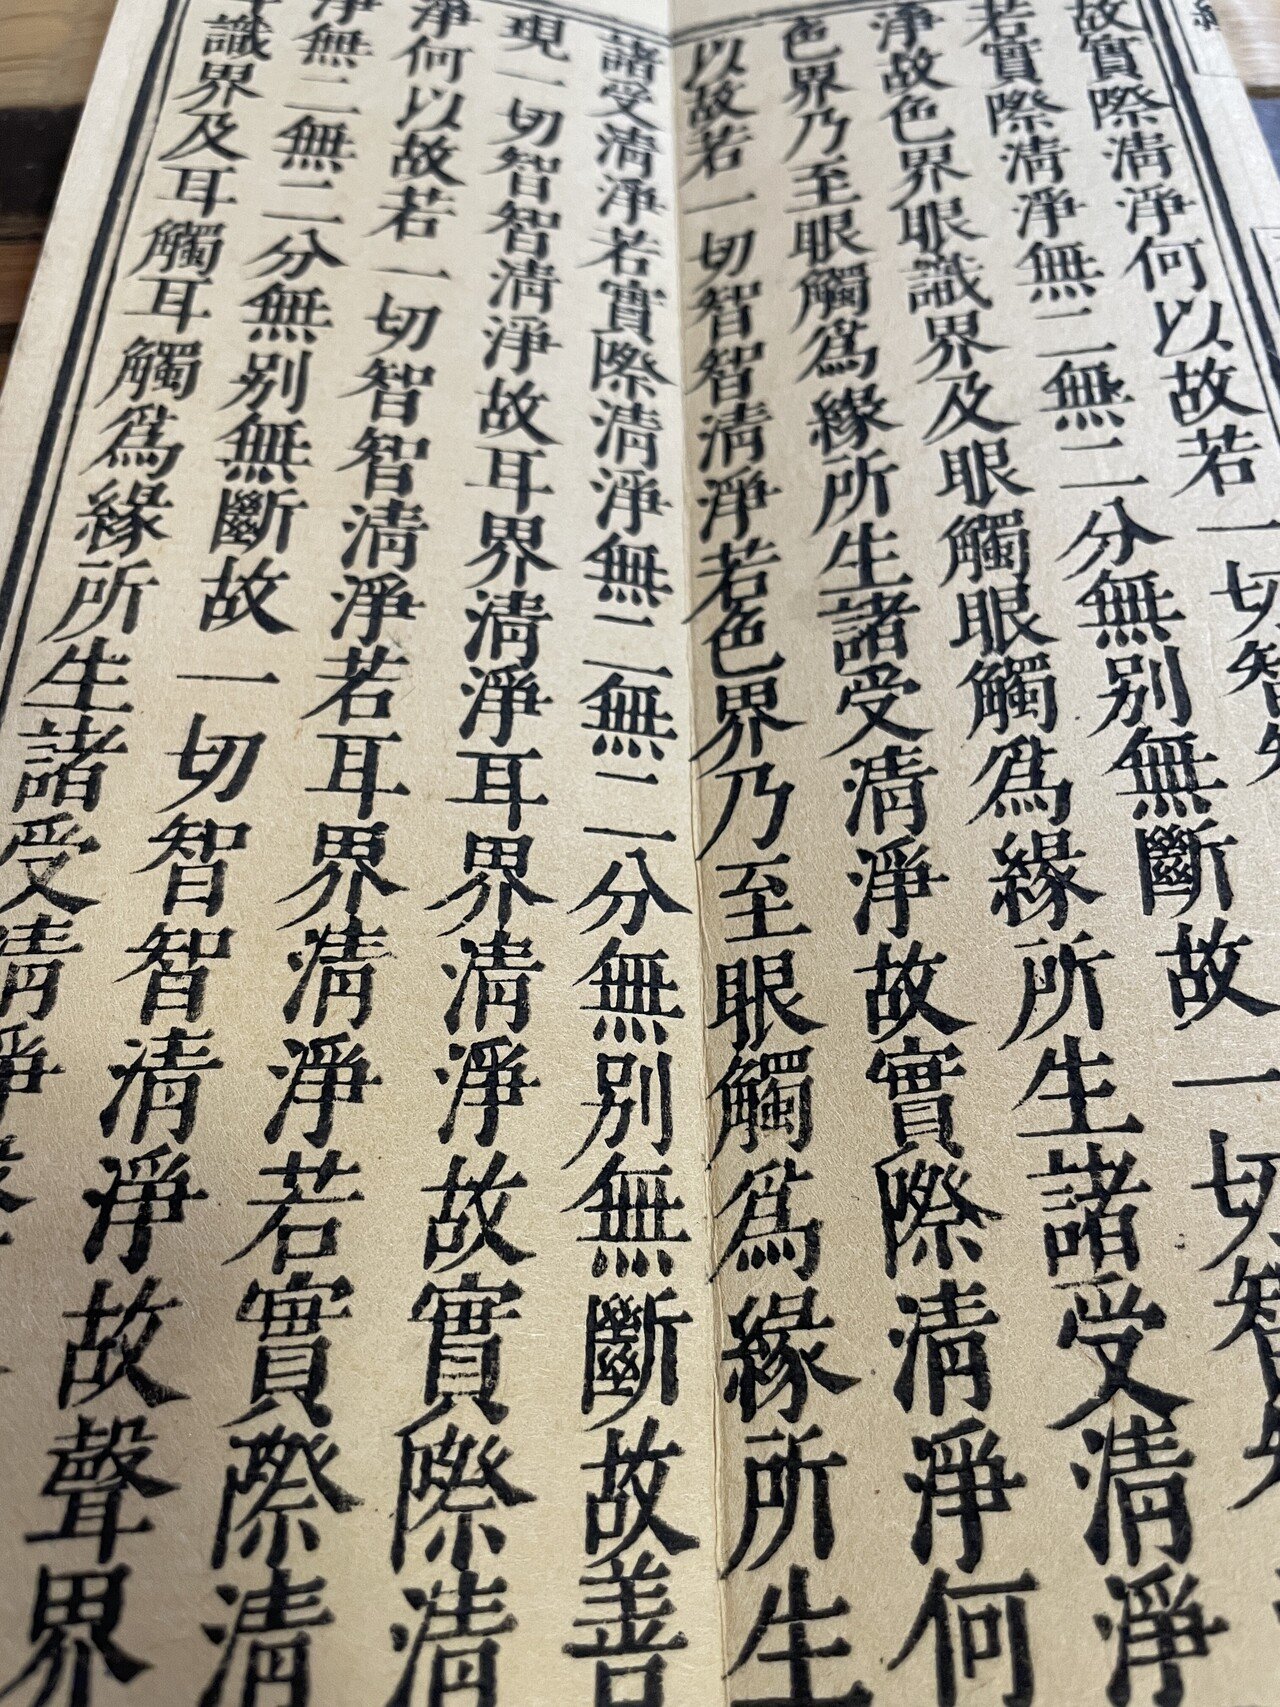 故實際清淨何以故若一切智
若實際清淨無二無二分無别無斷故一切智
淨故色界眼識界及眼觸眼觸爲緣所生諸受清淨
色界乃至眼觸爲緣所生諸受清淨故實際清淨何
以故若一切智智清淨若色界乃至眼觸爲緣所生
諸受清淨若實際清淨無二無二分無别無斷故善
現一切智智清淨故耳界清淨耳界清淨故實際清
淨何以故若一切智智清淨若耳界清淨若實際清
淨無二無二分無别無斷故一切智智清淨故聲界
識界及耳觸耳觸爲緣所生諸受清淨